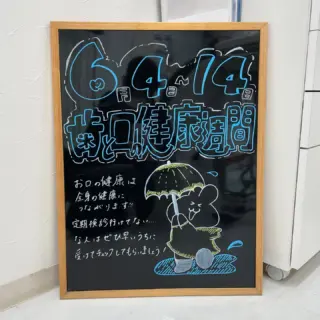 6月4日〜14日
歯と口の健康週間
お口の健康は
全身の健康に
つながります!!
定期検診行けてない…
な人はぜひ早いうちに
受けてチェックしてもらいましょう!